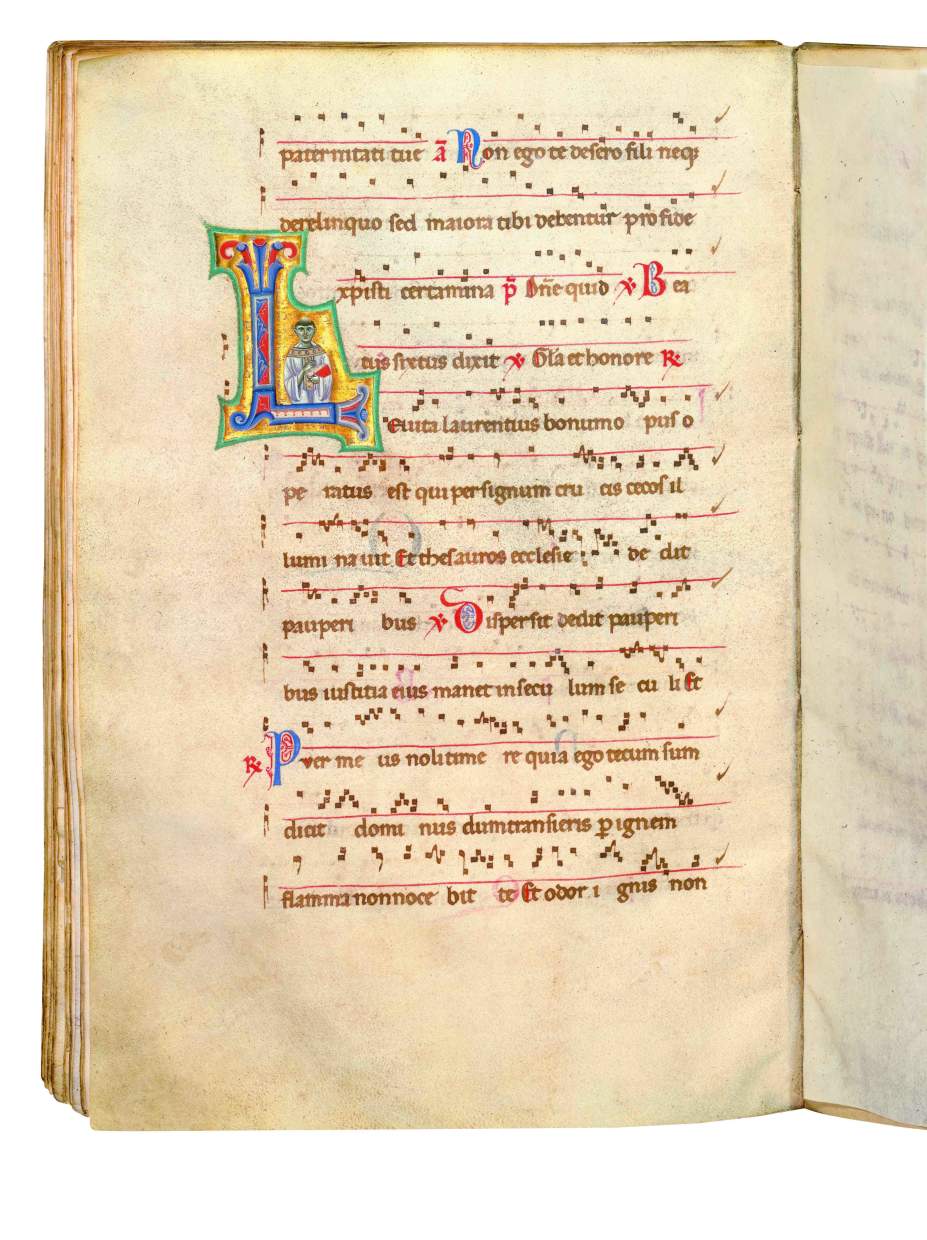 paternitati tue a̅ Non ego te desero fili neqꝫ
derelinquo sed maiora tibi debentur pro fide
xpisti certamina p̅ Dn̅e quid ℣ Bea
tus sixtus dixit ℣ Gl̅a et honore ℟
Levita laurentius bonum o pus o
pe ratus est qui per signum cru cis cecos il
lumi na uit Et thesauros ecclesie de dit
pauperi bus ℣ Dispersit dedit pauperi
bus iustitia eius manet in secu lum se cu li Et
℟ Puer me us noli time re quia ego tecum sum
dicit domi nus dum transieris ꝑ ignem
flamma non noce bit te Et odor i gnis non